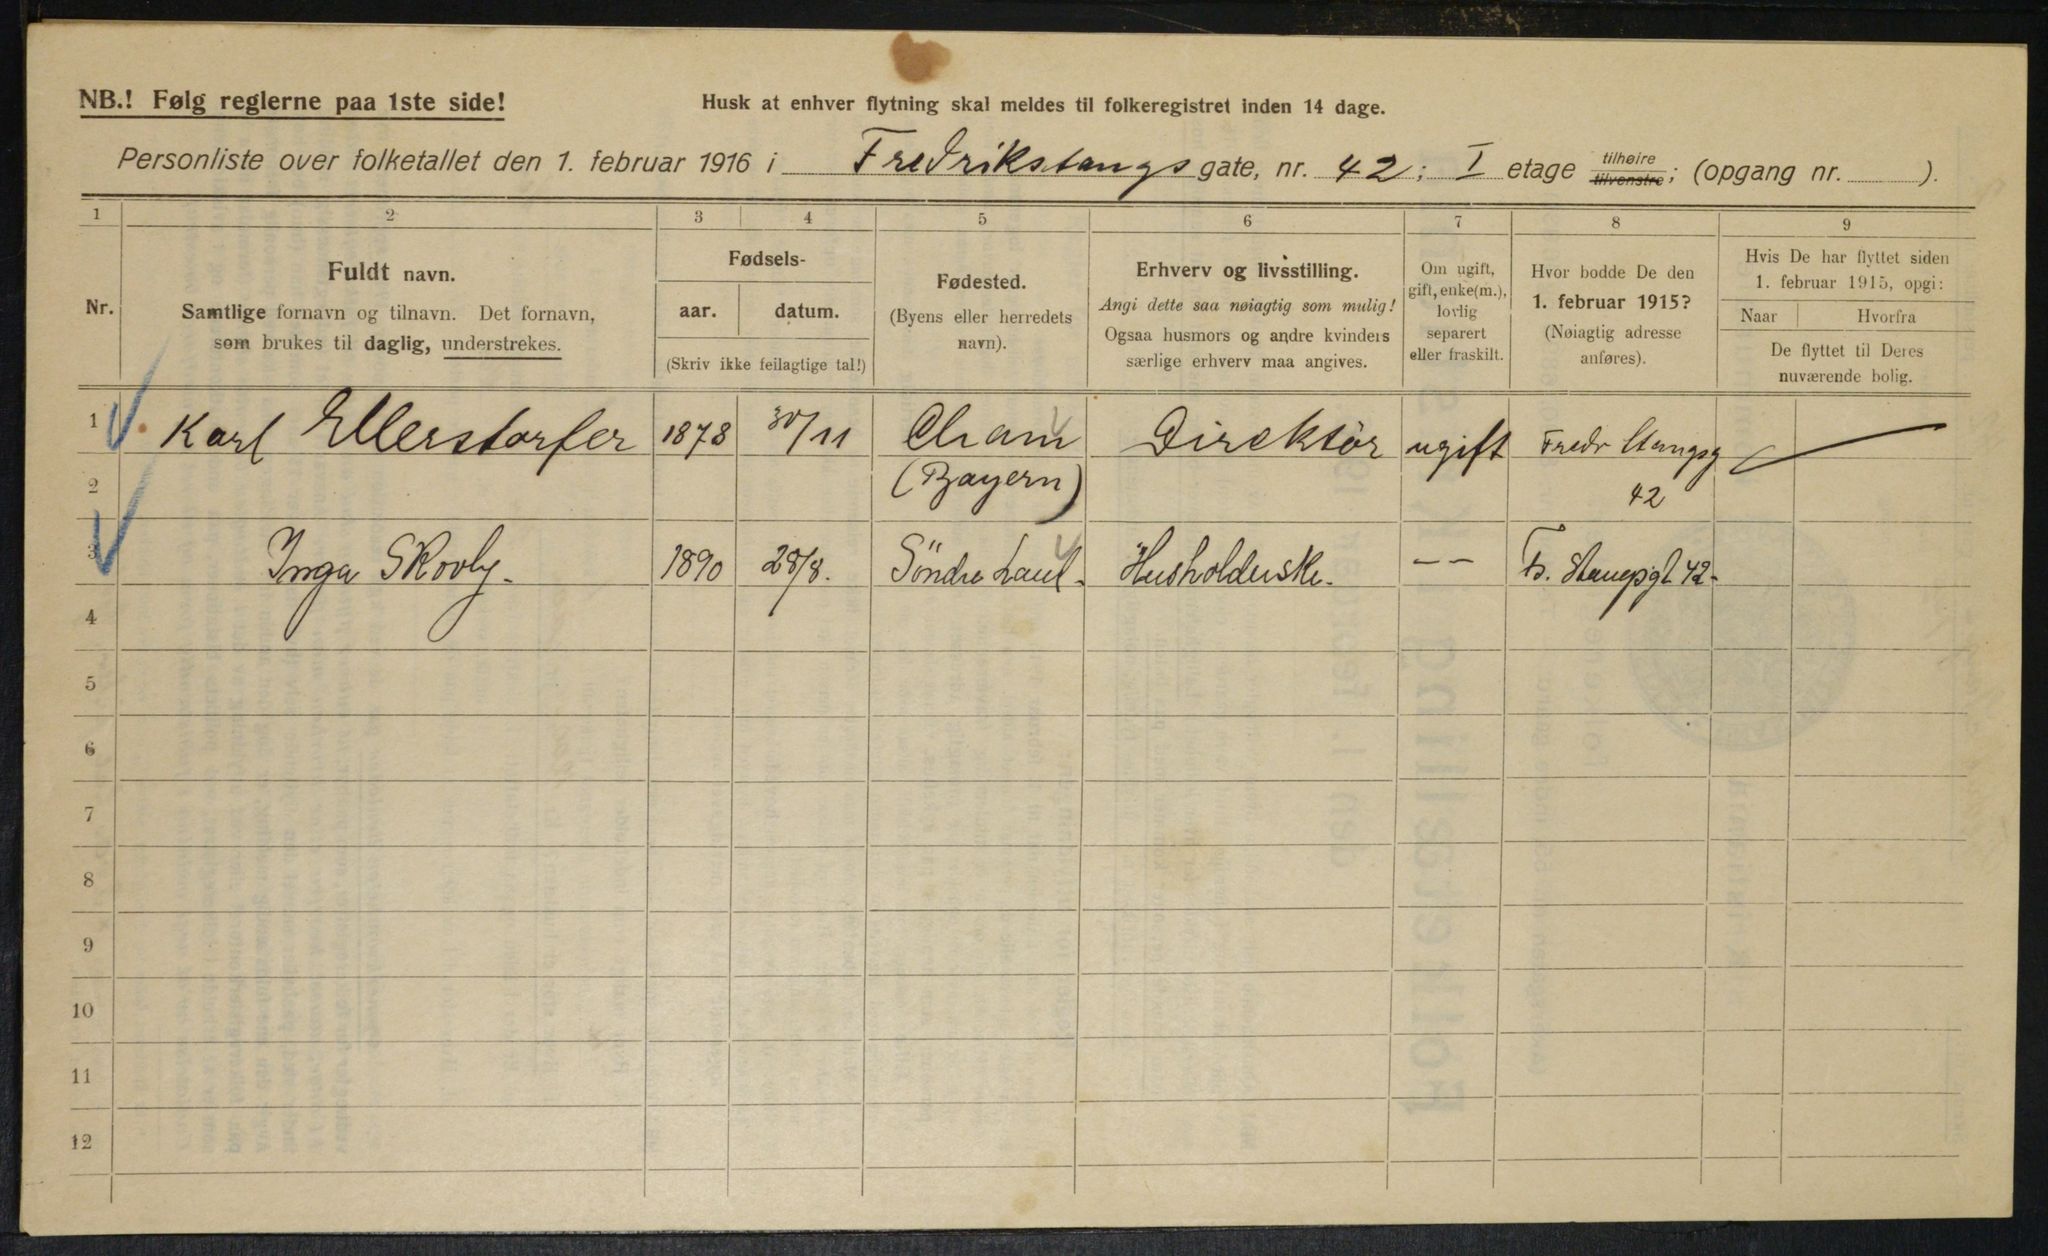 NB.! Følg reglerne paa 1ste side!
Husk at enhver flytning skal meldes til folkeregistret inden 14 dage.
Personliste over folketallet den 1. februar 1916 i Fredrikstangs gate, nr. 42; I etage tilhøire tilvenstre; (opgang nr. ).
1 2 3 4 5 6 7 8 9
Nr.
Fuldt navn.
Samtlige fornavn og tilnavn. Det fornavn,
som brukes til daglig, understrekes.
Fødsels-
aar. datum.
(Skriv ikke feilagtige tal!)
Fødested.
(Byens eller herredets
navn).
Erhverv og livsstilling.
Angi dette saa nøiagtig som mulig!
Ogsaa husmors og andre kvinders
særlige erhverv maa angives.
Om ugift,
gift, enke(m.),
lovlig
separert
eller fraskilt.
Hvor bodde De den
1. februar 1915?
(Nøiagtig adresse
anføres).
Hvis De har flyttet siden
1. februar 1915, opgi:
Naar Hvorfra
De flyttet til Deres
nuværende bolig.
1 Karl Ellerstorfer 1878 30/11 Cham Direktör ugift Fredr Stangsg
2 (Bayern) 42
3 Inga Skovly. 1890 28/8. Söndre Husholderske. -- Fr. Stangsgt 42-
4
5
6
7
8
9
10
11
12